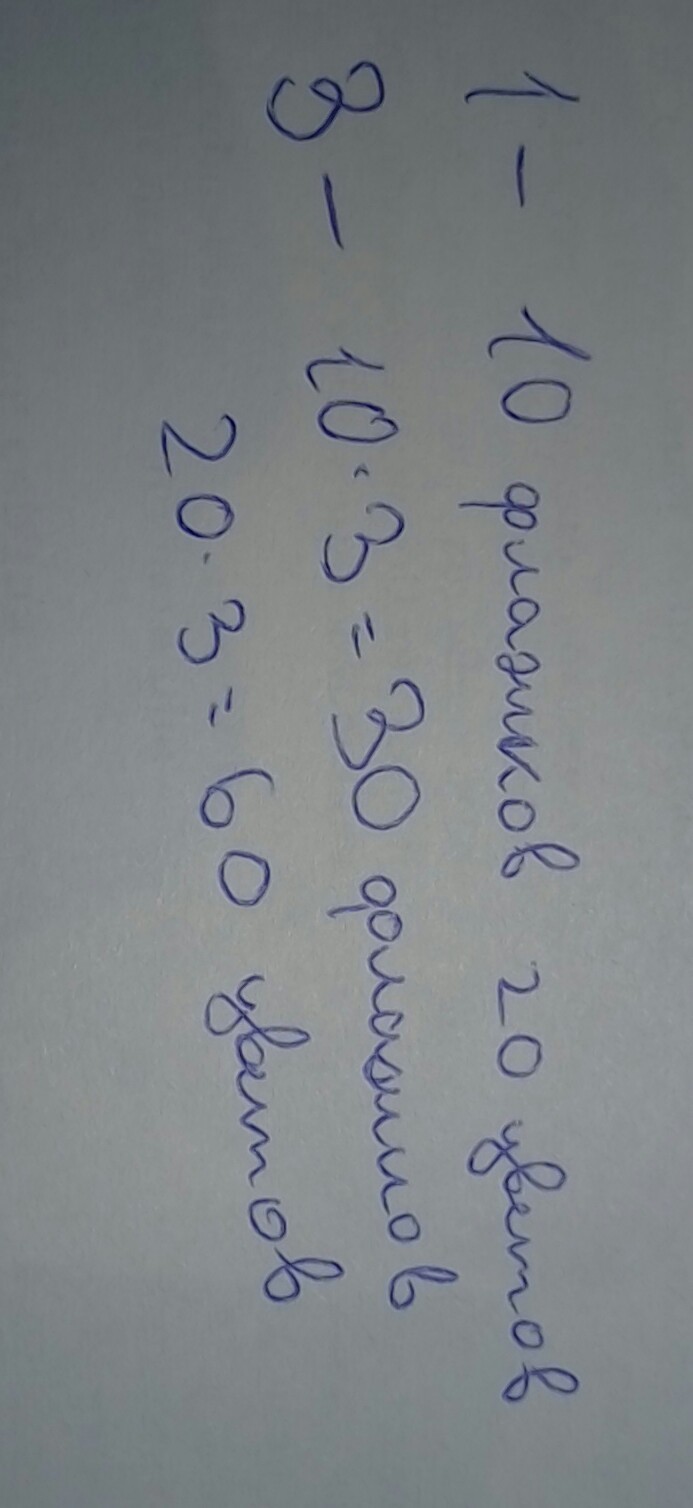 1 - 10 флажков 20 цветов
3 - 10·3=30 флажков
20·3=60 цветов